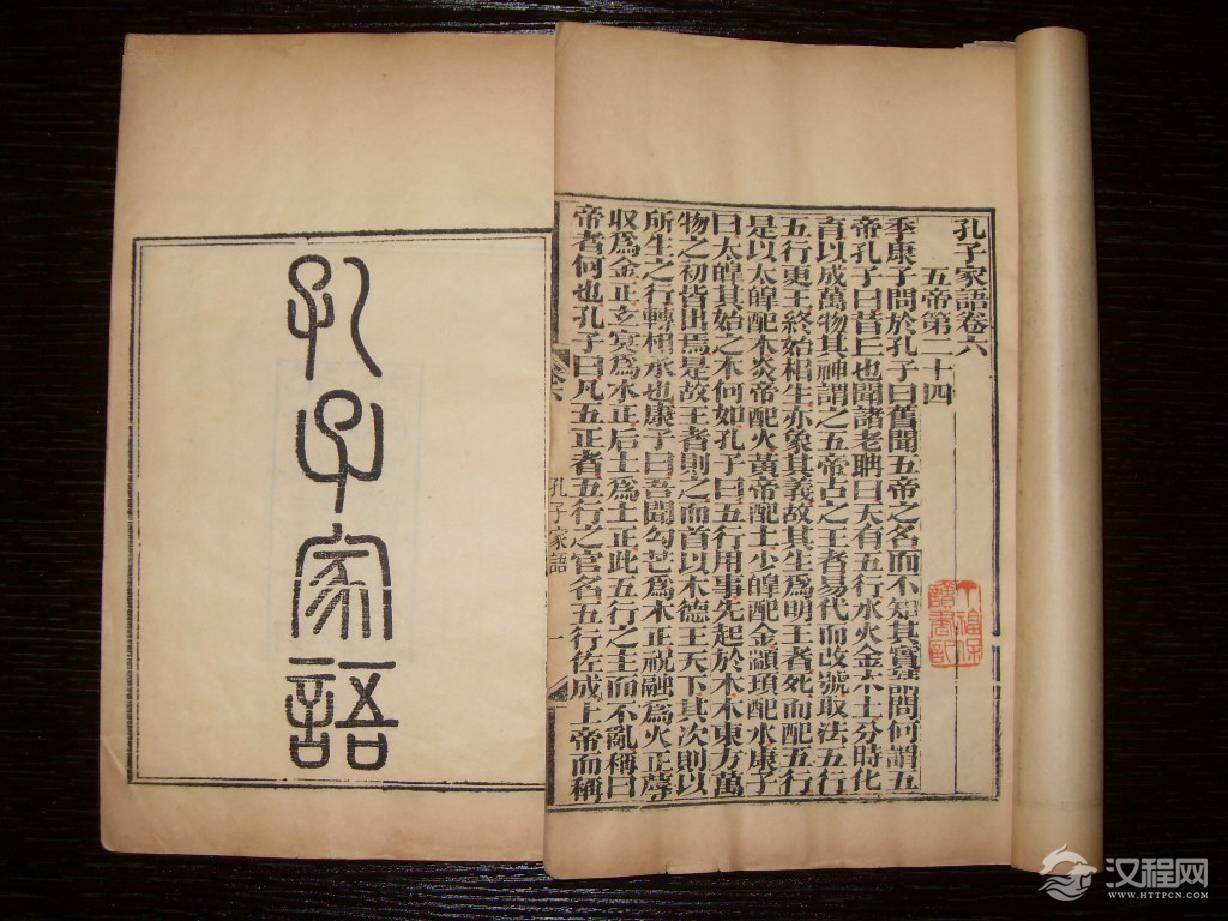 孔子家語卷六
五帝第二十四
季康子問於孔子曰舊聞五帝之名而不知其實請問何謂五
帝孔子曰昔丘也聞諸老聃曰天有五行水火金木土分時化
育以成萬物其神謂之五帝古之王者易代而改號取法五行
五行更王終始相生亦象其義故其生爲明王者死而配五行
是以太皥配木炎帝配火黃帝配土少皥配金顓頊配水康子
曰太皥其始之木何如孔子曰五行用事先起於木木東方萬
物之初皆出焉是故王者則之而首以木德王天下其次則以
所生之行轉相承也康子曰吾聞勾芒爲木正祝融爲火正蓐
收爲金正玄冥爲水正后土爲土正此五行之主而不亂稱曰
帝者何也孔子曰凡五正者五行之官名五行佐成上帝而稱
孔子家語 一
孔子家語
汉程网
WWW.HTTPCN.COM